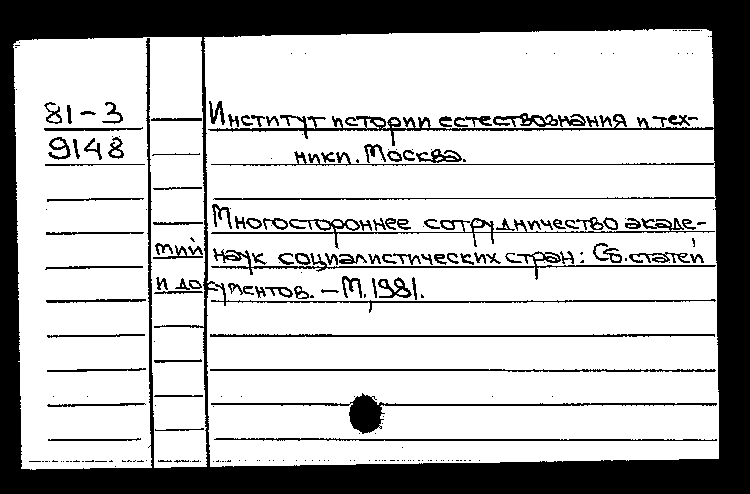 81-3
9148
Институт истории естествознания и тех-
ники. Москва.
Многостороннее сотрудничество акаде-
мий наук социалистических стран: Сб. статей
и документов. – М., 1981.